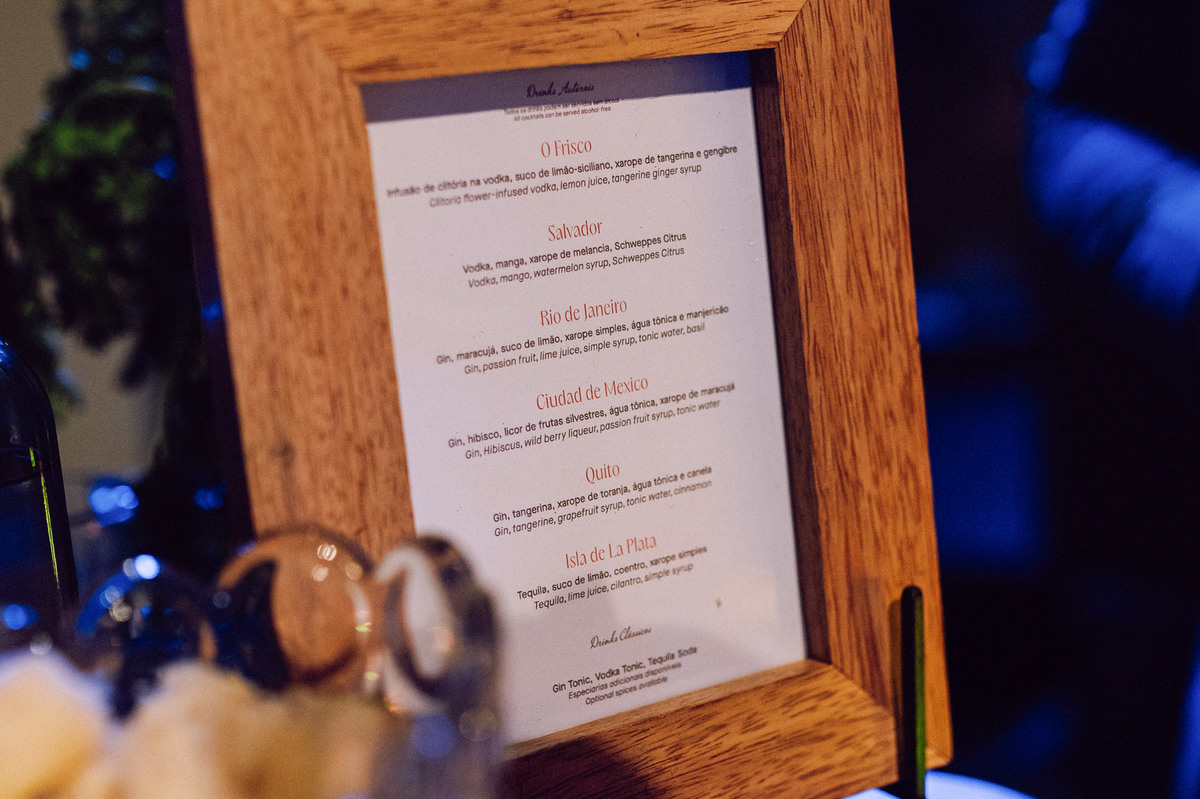 Drinks Autorais
Todos os drinks podem ser servidos sem álcool
All cocktails can be served alcohol-free
O Frisco
Infusão de clitória na vodka, suco de limão-siciliano, xarope de tangerina e gengibre
Clitoria flower-infused vodka, lemon juice, tangerine ginger syrup
Salvador
Vodka, manga, xarope de melancia, Schweppes Citrus
Vodka, mango, watermelon syrup, Schweppes Citrus
Rio de Janeiro
Gin, maracujá, suco de limão, xarope simples, água tônica e manjericão
Gin, passion fruit, lime juice, simple syrup, tonic water, basil
Ciudad de Mexico
Gin, hibisco, licor de frutas silvestres, água tônica, xarope de maracujá
Gin, Hibiscus, wild berry liqueur, passion fruit syrup, tonic water
Quito
Gin, tangerina, xarope de toranja, água tônica e canela
Gin, tangerine, grapefruit syrup, tonic water, cinnamon
Isla de La Plata
Tequila, suco de limão, coentro, xarope simples
Tequila, lime juice, cilantro, simple syrup
Drinks Clássicos
Gin Tonic, Vodka Tonic, Tequila Soda
Especiarias adicionais disponíveis
Optional spices available